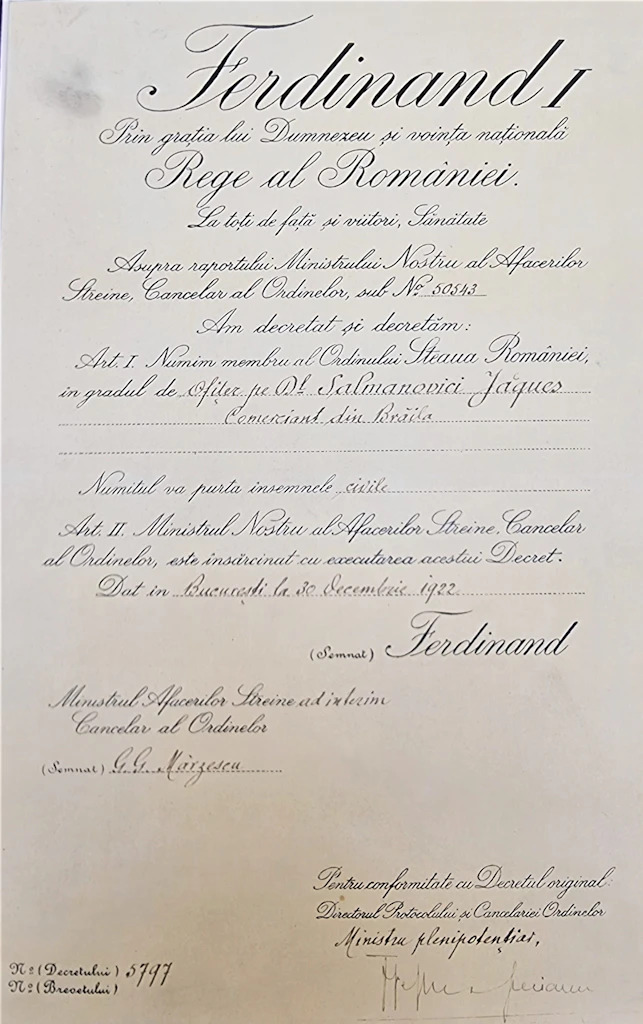 Ferdinand I
Prin grația lui Dumnezeu și voința națională
Rege al României.
La toti de față și viitori, Sănătate
Asupra raportului Ministrului Nostru al Afacerilor
Streine, Cancelar al Ordinelor, sub No. 50543
Am decretat și decretăm:
Art. I. Numim membru al Ordinului Steaua României,
in gradul de Ofițer pe Dl Salmanovici Jaques
Comerciant din Brăila
Numitul va purta insemnele civile
Art. II. Ministrul Nostru al Afacerilor Streine, Cancelar
al Ordinelor, este însărcinat cu executarea acestui Decret.
Dat in București la 30 Decembrie 1922
(Semnat) Ferdinand
Ministrul Afacerilor Streine ad interim
Cancelar al Ordinelor
(Semnat) G.G. Mârzescu
Pentru conformitate cu Decretul original:
Directorul Protocolului și Cancelariei Ordinelor
Ministru plenipotențiar,
No (Decretului) 5797
No (Brevetului)